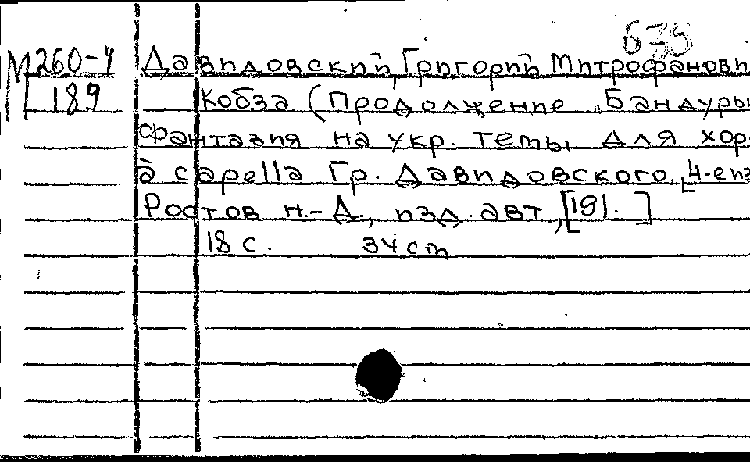 675
М260-4 Давидовский, Григорий Митрофанови
189 Кобза (Продолжение "Бандуры
фантазия на укр. темы для хор
à capella Гр. Давидовского, 4-е
Ростов н.-Д, изд. авт., [191. ]
18 с. 34 cm